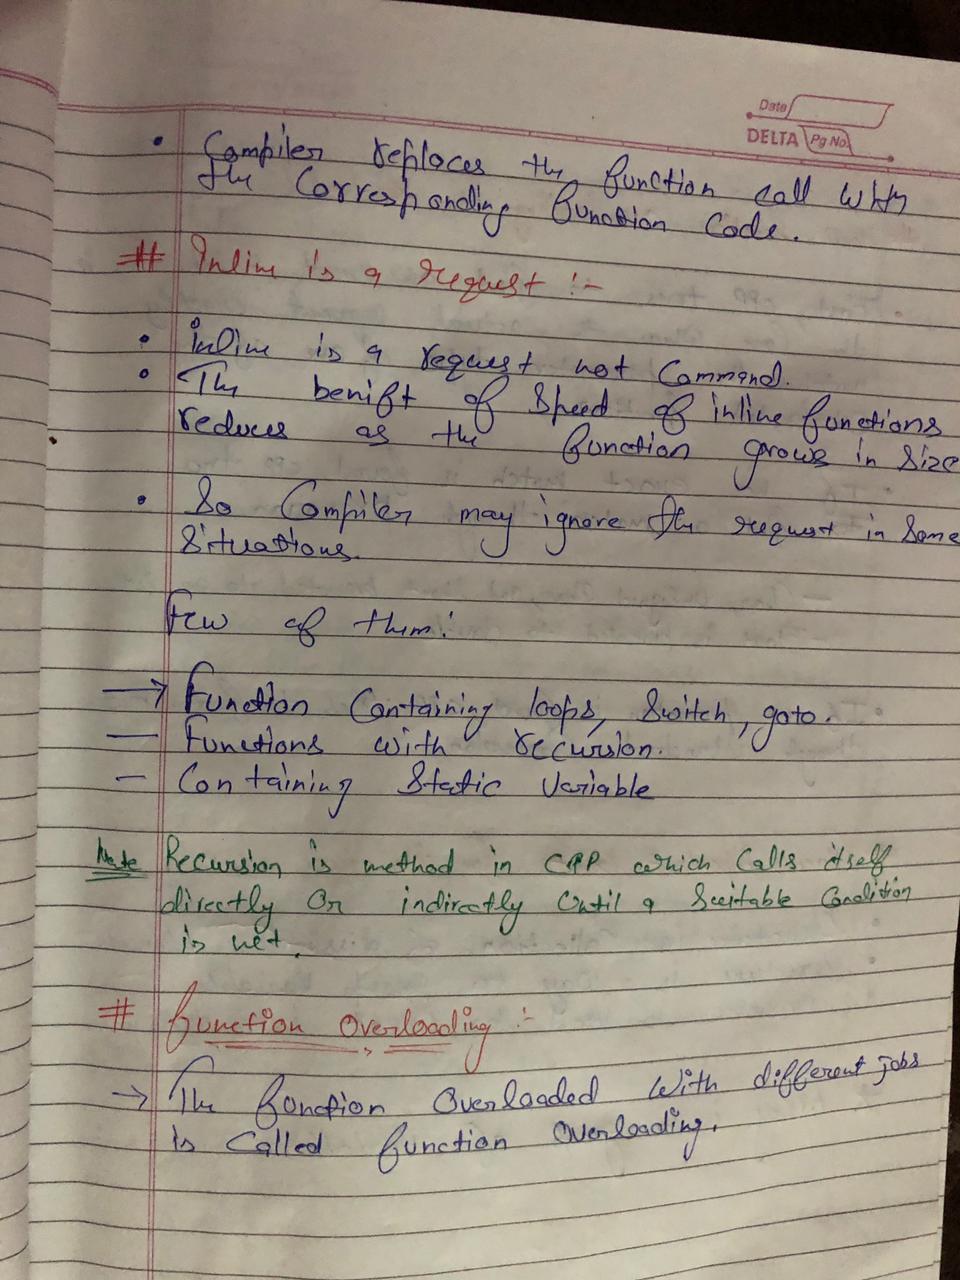 Date
DELTA Pg No.
• Compiler replaces the function call with
the Corresponding function Code.
# Inline is a request :-
• inline is a request not Command.
• The benift of Speed of inline functions
reduces as the function grows in Size
• So Compiler may ignore the request in Some
Situations.
Few of them:
→ Function Containing loops, Switch, goto.
— Functions with recursion.
— Containing Static Variable
Note Recursion is method in CPP which Calls itself
directly Or indirectly Until a Suitable Condition
is met.
# Function Overloading :-
→ The function Overloaded With different jobs
is Called function Overloading.